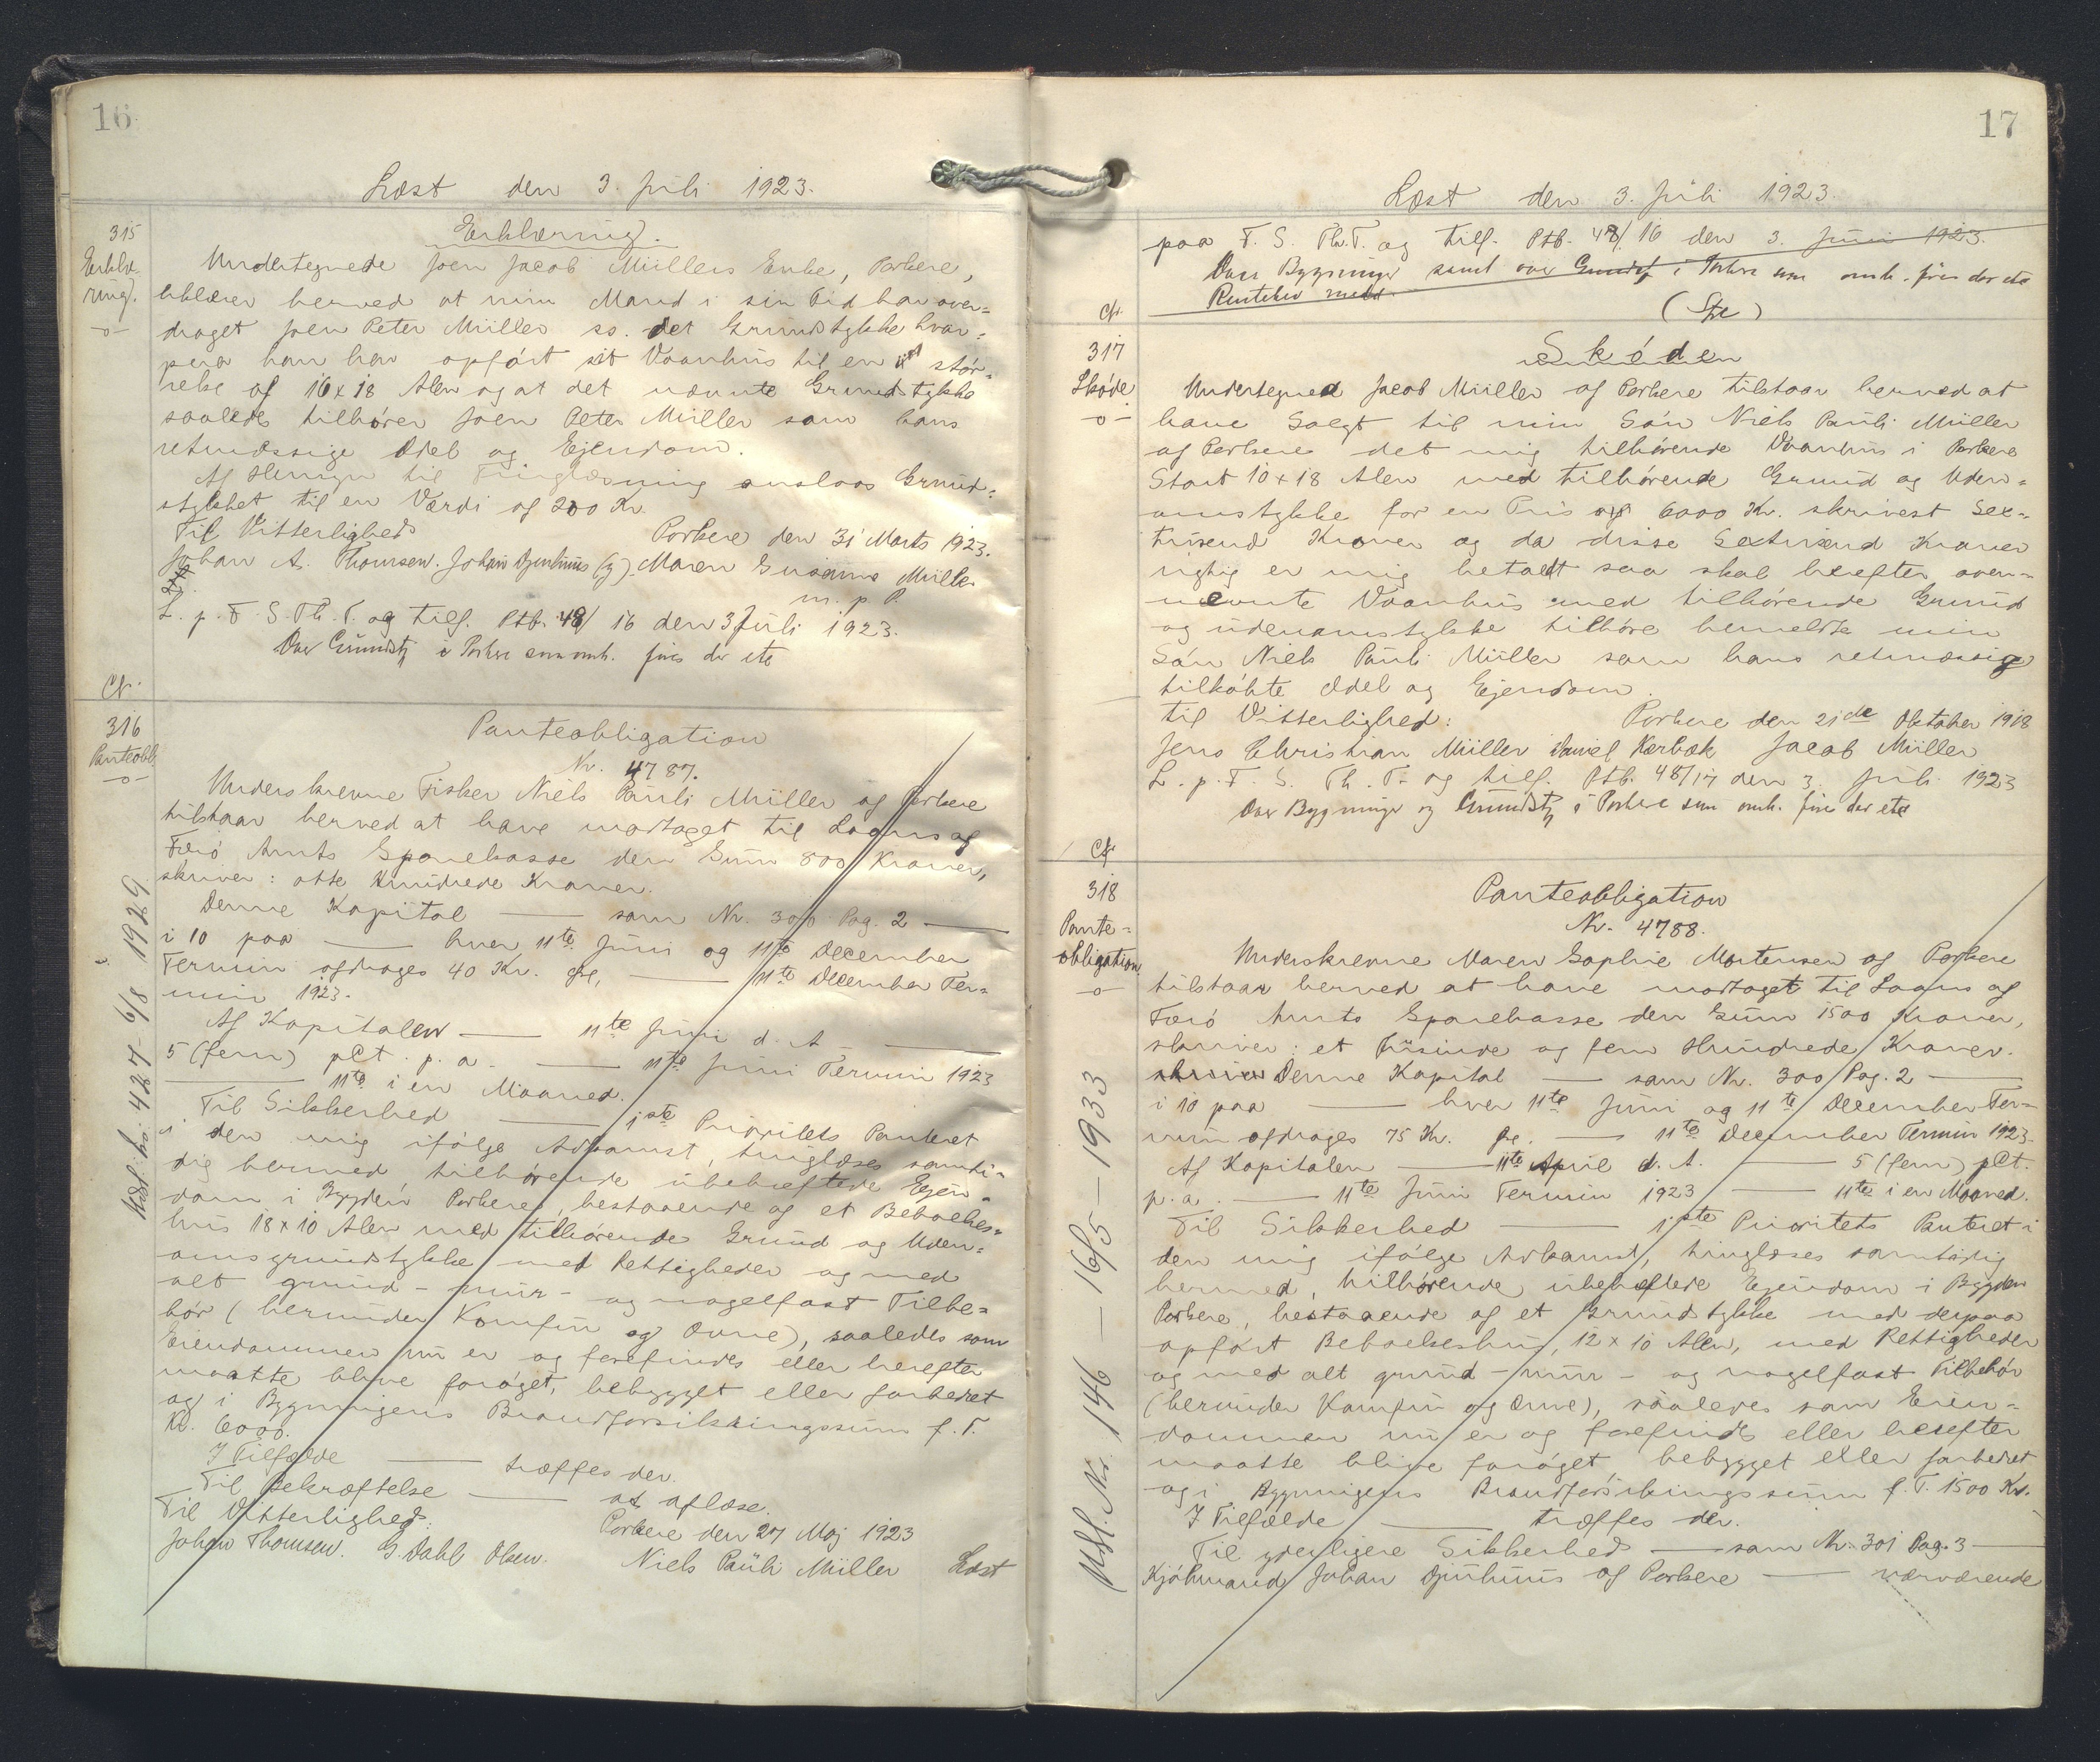 16
Læst den 3. Juli 1923.
315
Erklæ-
ring.
Erklæring.
Undertegnede Joen Jacob Müllers Enke, Porkere,
erklærer herved at min Mand i sin Tid har over-
draget Joen Peter Müller ss. det Grundstykke hvor-
paa han har opført sit Vaanhus til en stør-
relse af 16 x 18 Alen og at det nævnte Grundstykke
saaledes tilhører Joen Peter Müller som hans
retmæssige Odel og Ejendom.
Af Hensyn til Tinglæsning ansloas Grund-
stykket til en Værdi af 200 Kr.
Til Vitterlighed Porkere den 31 Marts 1923.
Johan A. Thomsen. Johan Djurhuus (g). Maren Susanna Müller
m. p. P.
L. p. F. S. Th. T. og tilf. Ptb. 48/16 den 3 Juli 1923.
Over Grundst. i Porkere som omh. fires der etc
Ct.
316
Panteobl.
Panteobligation
Nr. 4787.
Underskrevne Fisker Niels Pauli Müller af Porkere
tilstaar herved at have modtaget til Laans af
Færø Amts Sparekasse den Sum 800 Kroner,
skriver: otte Hundrede Kroner.
Denne Kapital — som Nr. 300 Pag. 2 —
i 10 paa — hver 11te Juni og 11te December
Termin afdrages 40 Kr. Gr., — 11te December Ter-
min 1923.
Af Kapitalen — 11te Juni d. A —
5 (fem) pCt. p. a. — 11te Juni Termin 1923
— 11te i en Maaned.
Til Sikkerhed — 1ste Prioritets Panteret
i den mig ifølge Adkomst, tinglæses samti-
dig hermed tilhørende ubehæftede Ejen-
dom i Bygden Porkere, bestaaende af et Beboelses-
hus 18 x 10 Alen med tilhørende Grund og Uden-
omsgrundstykke med Rettigheder og med
alt grund- mur- og nagelfast Tilbe-
hør (herunder Komfur og Ovne), saaledes som
Eiendommen nu er og forefindes eller herefter
maatte blive forøget, bebygget eller forbedret
og i Bygningens Brandforsikringssum f. T.
Kr. 6000.
I Tilfælde — træffes der.
Til Bekræftelse — at aflæse.
Til Vitterlighed: Porkere den 27 Maj 1923
Johan Thomsen. G. Dahl Olsen. Niels Pauli Müller Læst
Udsl. No. 427 - 6/8 1929
17
Læst den 3. Juli 1923.
paa F. S. Th. T. og tilf. Ptb. 48/16 den 3. Juni 1923.
Over Bygninger samt over Grundst. i Porkere som omh. fires der etc
Ct.
317
Skøde
Skøden
Undertegned Jacob Müller af Porkere tilstaar herved at
have Solgt til min Søn Niels Pauli Müller
af Porkere det mig tilhørende Vaanhus i Porkere
Stort 10 x 18 Alen med tilhørende Grund og Uden-
omstykke for en Pris af 6000 Kr. skrivest Sex-
tusend Kroner og da disse Sextusend Kroner
rigtig er mig betaldt saa skal herefter oven-
nevnte Vaanhus med tilhörende Grund
og udenomstykke tilhöre bemeldte min
Søn Niels Pauli Müller som hans retmæssige
tilköbte Odel og Ejendom.
til Vitterlighed: Porkere den 21de Oktober 1918
Jens Christian Müller Daniel Kærbæk Jacob Müller
L. p. F. S. Th. T. og tilf. Ptb. 48/17 den 3. Juli 1923
Over Bygninger og Grundst. i Porkere som omh. fires der etc
Ct.
318
Pante-
obligation
Panteobligation
Nr. 4788.
Underskrevne Maren Sophie Mortensen af Porkere
tilstaar herved at have modtaget til Laans af
Færø Amts Sparekasse den Sum 1500 Kroner,
skriver: et Tusinde og fem Hundrede Kroner.
skriver Denne Kapital — som Nr. 300 Pag. 2 —
i 10 paa — hver 11te Juni og 11te December Ter-
min afdrages 75 Kr. Gr. — 11te December Termin 1923.
Af Kapitalen — 11te April d. A. — 5 (fem) pCt.
p. a. — 11te Juni Termin 1923 — 11te i en Maaned.
Til Sikkerhed — 1ste Prioritets Panteret i
den mig ifølge Adkomst, tinglæses samtidig
hermed, tilhørende ubehæftede Ejendom i Bygden
Porkere, bestaaende af et Grundstykke med derpaa
opført Beboelseshus, 12 x 10 Alen, med Rettigheder
og med alt grund- mur- og nagelfast Tilbehør
(herunder Komfur og Ovne), saaledes som Eien-
dommen nu er og forefindes eller herefter
maatte blive forøget, bebygget eller forbedret
og i Bygningens Brandforsikringssum f. T. 1500 Kr.
I Tilfælde — træffes der.
Til yderligere Sikkerhed — som Nr. 301 Pag. 3 —
Kjøbmand Johan Djurhuus af Porkere — værværende
Udsl. Nr. 146 — 16/5 — 1933